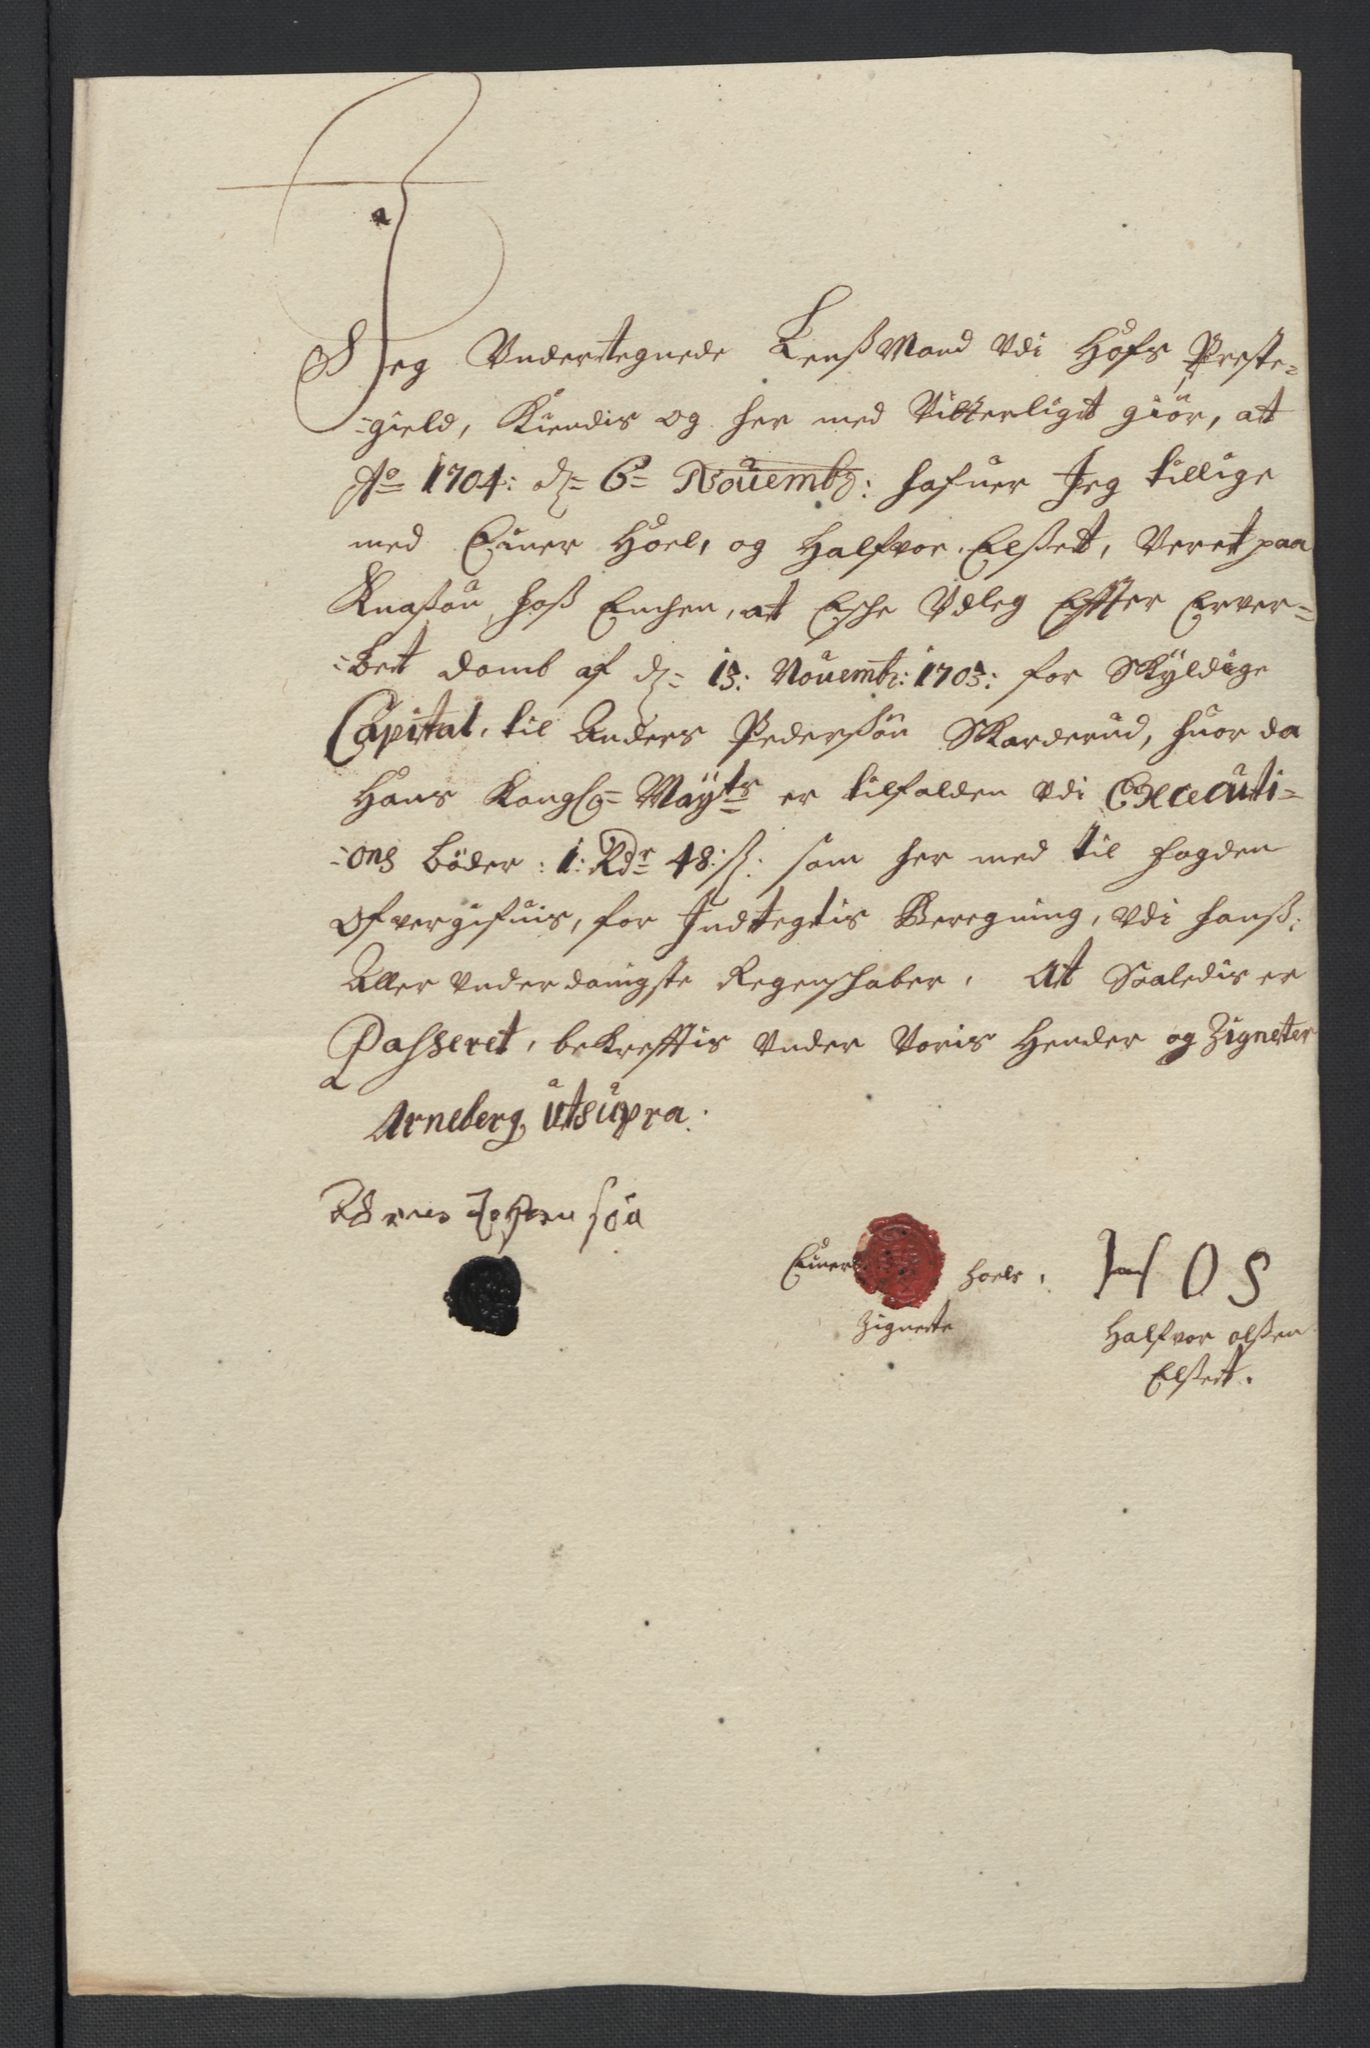 Jeg Underetegnede Lenßmand Udi Hofs Preste-
-gield, Kiendis og her med Vitterligt giör, at
Ao 1704: dz= 6= Nouembr: hafuer Jeg tillige
med Einer Hoel, og Halfvor Elßet, Veret paa
Knaßou hoß Enchen, at Eshe Udleg Efter Erver-
-bet domb af dz= 13: Nouembr: 1703: for Skyldige
Capital, til Anders Pederßön Skarderud, huor da
Hans Kongl= Mayts er tilfalden Udi Executi-
-ons böder: 1: Rdr 48: ß: som her med til fogden
Ofvergifuis, for Indtegtis Beregning, Udi hanß
Aller Underdanigste Regenshaber, At Saaledis er
Passeret, bekrefftis Under Voris Hender og Zigneter
Arneberg utsupra.
Johan sön
Einer Hoels
Zignete
H O S
Halfvor olßen
Elßet.